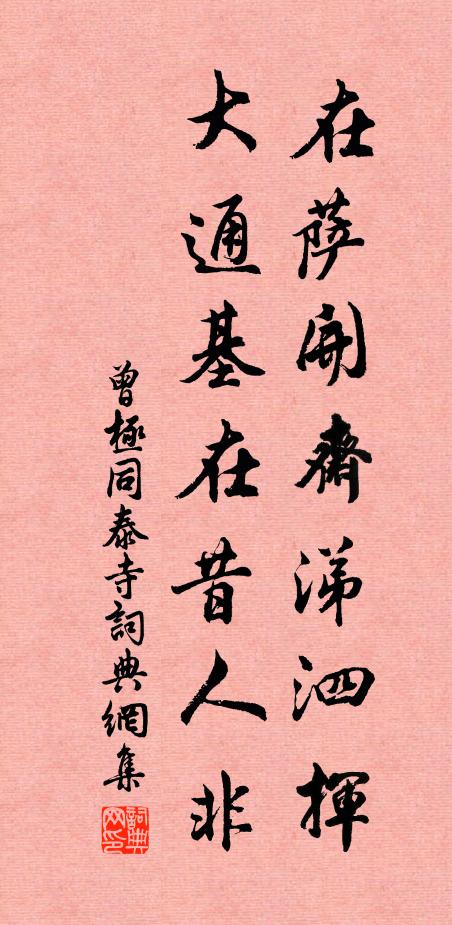 在薩開齋涕泗揮
大通基在昔人非
曾極同泰寺詞典網集
詞典网印